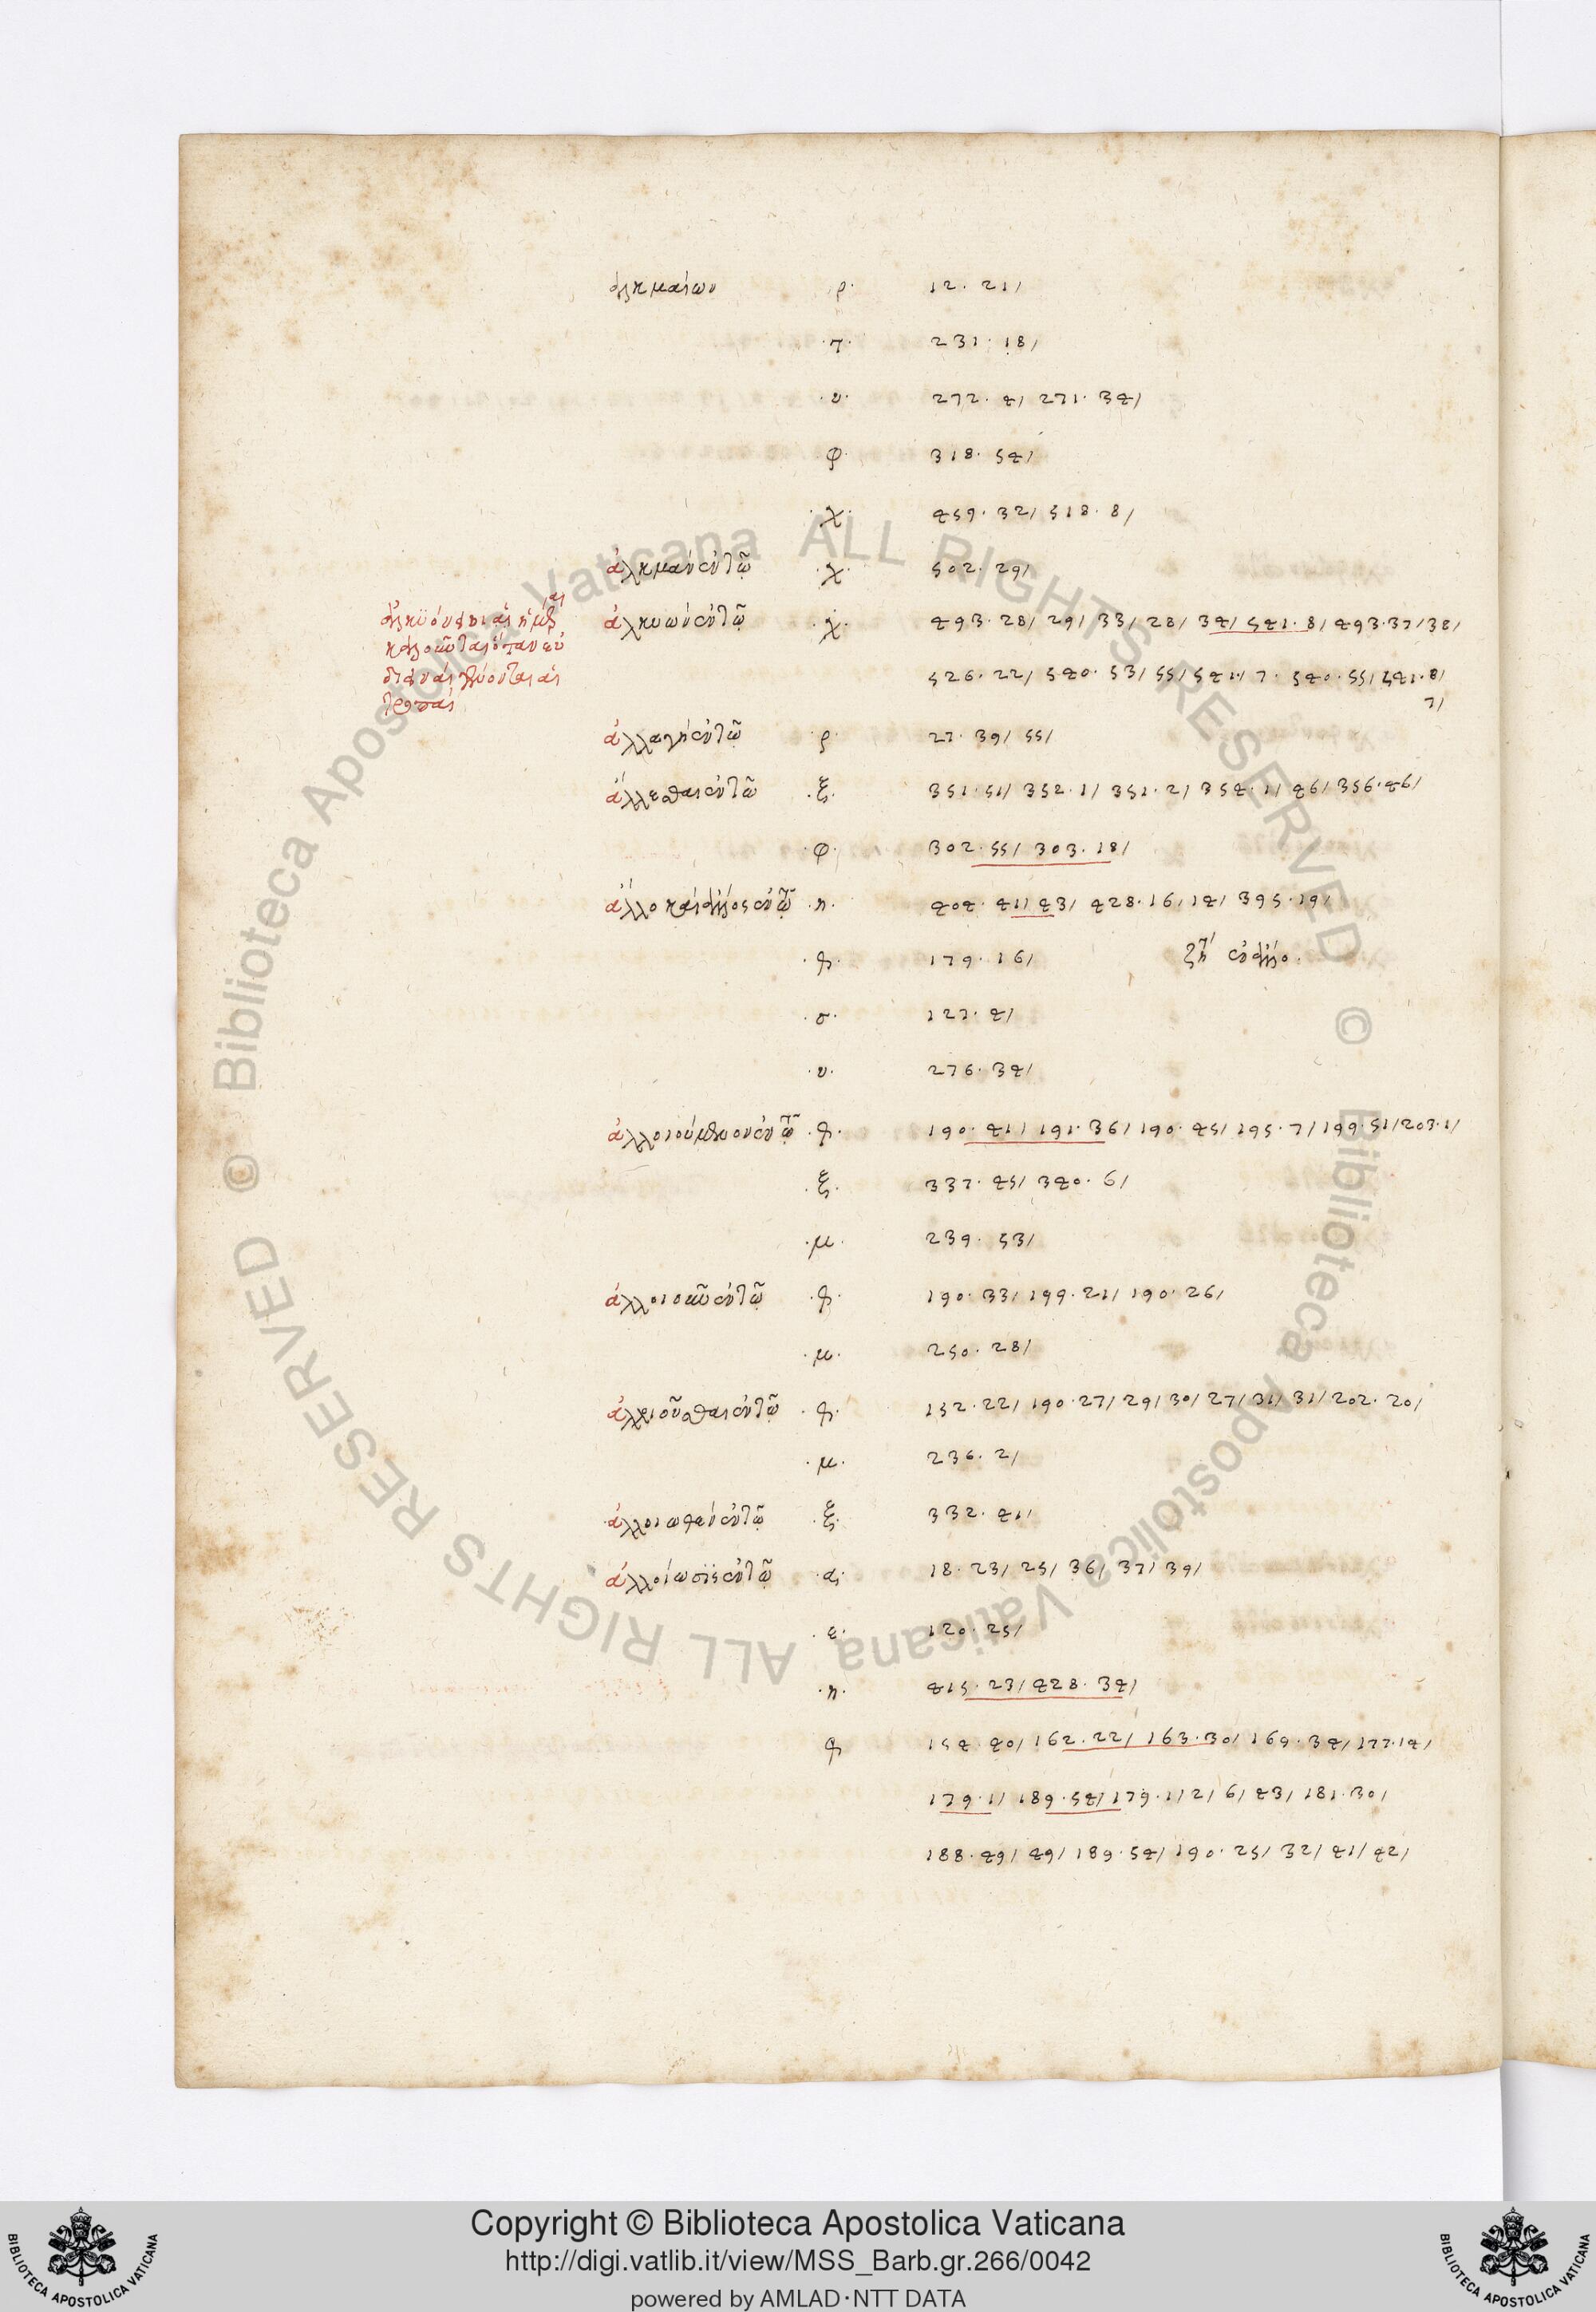 ἀλκμαίων ·ρ· 12. 21/
·τ· 231. 18/
·υ· 272. 4/ 271. 34/
φ· 318. 54/
·χ· 459. 32/ 518. 8/
ἀλκμὰν ἐν τῶ ·χ· 502. 29/
ἀλκυὼν ἐν τῶ ·χ· 493. 28/ 29/ 33/ 28/ 34/ 541. 8/ 493. 37/ 38/
526. 22/ 540. 53/ 55/ 541/ 7. 540. 55/ 541. 8/
7/
ἀλλαγὴ ἐν τῶ ·ρ· 27. 39/ 55/
ἅλλεσθαι ἐν τῶ ·ξ· 351. 51/ 352. 1/ 351. 2/ 354. 1/ 46/ 356. 46/
·φ· 302. 55/ 303. 18/
ἄλλο καὶ ἄλλος ἐν τῶ ·η· 404. 41/ 43/ 428. 16/ 14/ 395. 19/
179. 16/
·σ· 127. 4/
·υ· 276. 34/
ἀλλοιούμενον ἐν τῶ 190. 41/ 191. 36/ 190. 45/ 195. 7/ 199. 51/ 203. 1/
·ξ· 337. 45/ 340. 6/
·μ· 239. 53/
ἀλλοιοῦν ἐν τῶ 190. 33/ 199. 21/ 190. 26/
·μ· 250. 28/
ἀλλοιοῦσθαι ἐν τῶ 152. 22/ 190. 27/ 29/ 30/ 27/ 31/ 31/ 202. 20/
·μ· 236. 2/
ἀλλοιωθὲν ἐν τῶ ·ξ· 332. 41/
ἀλλοίωσις ἐν τῶ ·α· 18. 23/ 25/ 36/ 37/ 39/
·ε· 120. 25/
·η· 415. 23/ 428. 34/
154. 40/ 162. 22/ 163. 30/ 169. 34/ 177. 14/
179. 1/ 189. 54/ 179. 1/ 2/ 6/ 43/ 181. 30/
188. 49/ 49/ 189. 54/ 190. 25/ 32/ 41/ 42/
Copyright © Biblioteca Apostolica Vaticana
http://digi.vatlib.it/view/MSS_Barb.gr.266/0042
powered by AMLAD·NTT DATA
BIBLIOTECA APOSTOLICA VATICANA
BIBLIOTECA APOSTOLICA VATICANA
© Biblioteca Apostolica Vaticana ALL RIGHTS RESERVED
© Biblioteca Apostolica Vaticana ALL RIGHTS RESERVED